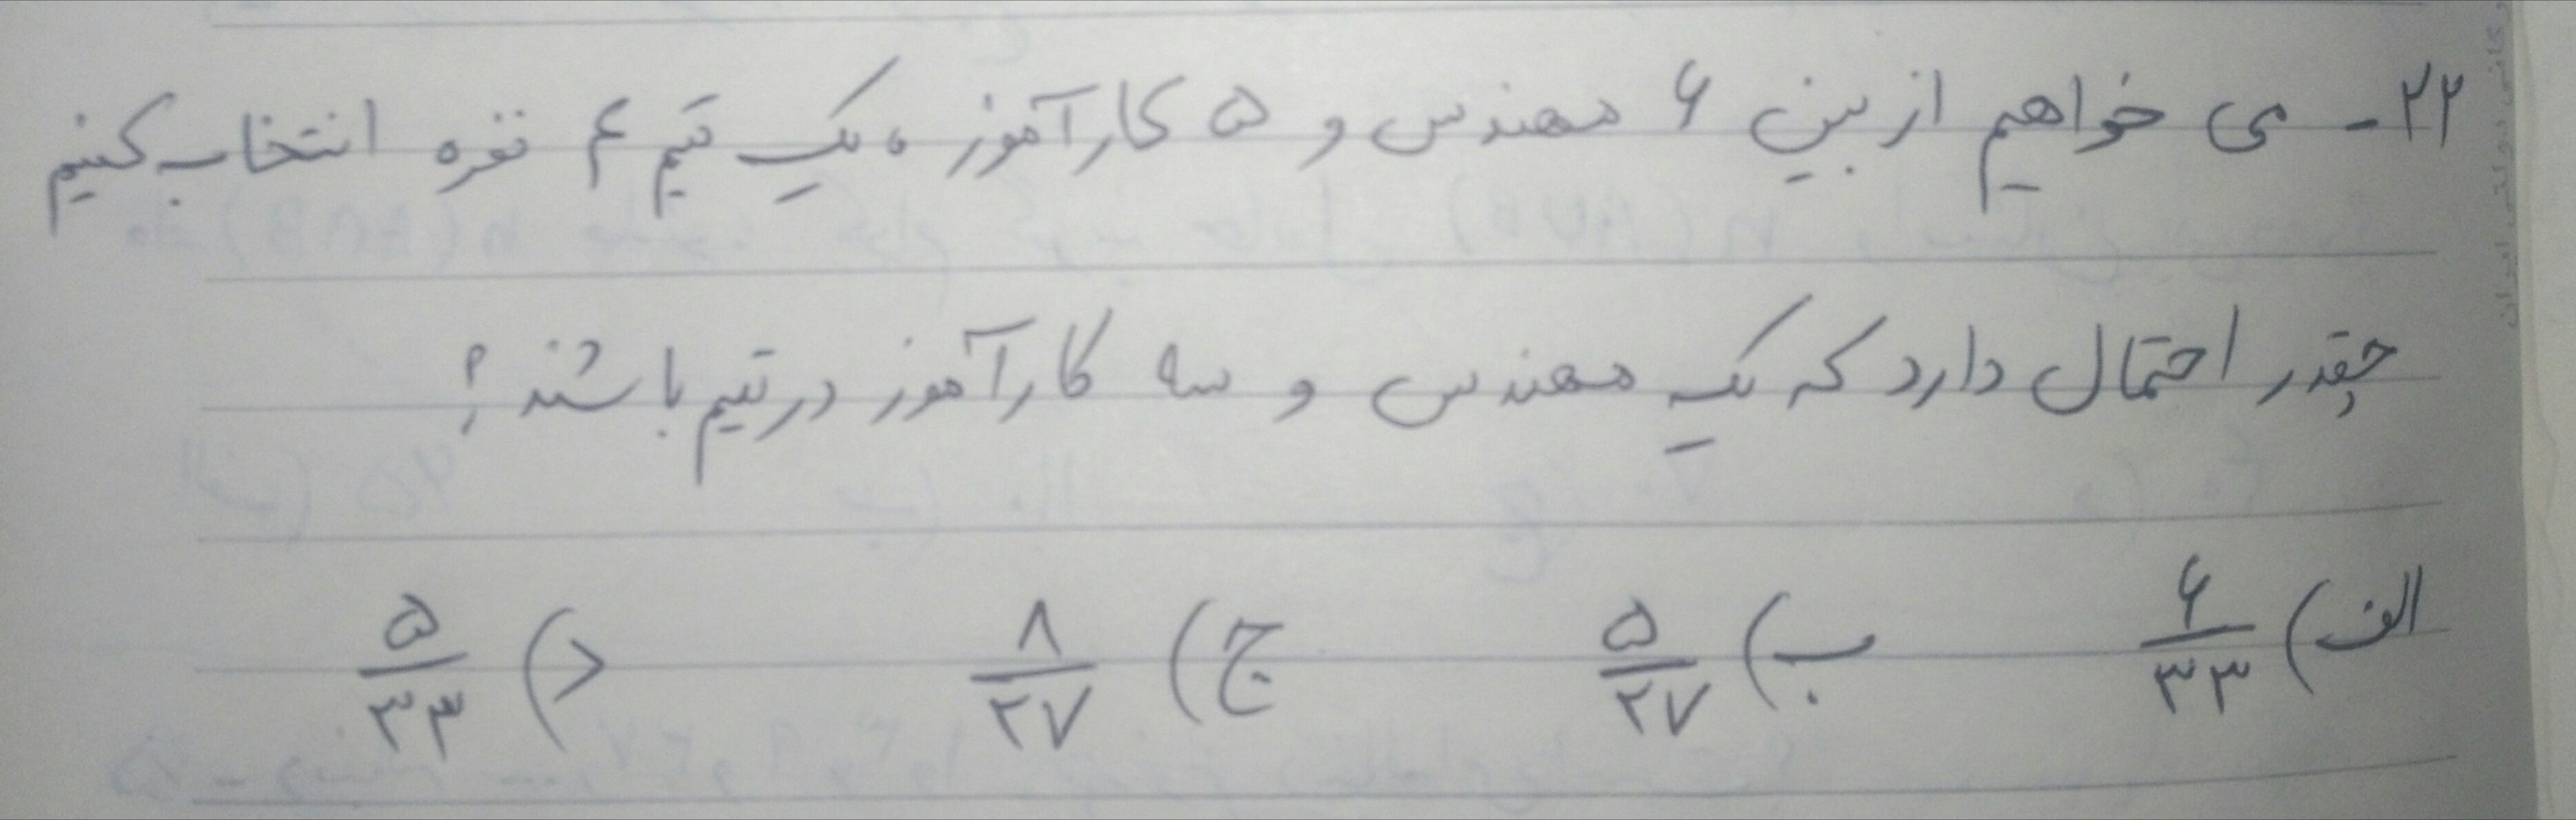 ۲۲- می خواهیم از بین ۶ مهندس و ۵ کارآموز، یک تیم ۴ نفره انتخاب کنیم
چقدر احتمال دارد که یک مهندس و سه کارآموز در تیم باشند؟
الف) ۶/۳۳ ب) ۵/۲۷ ج) ۸/۲۷ د) ۵/۳۳